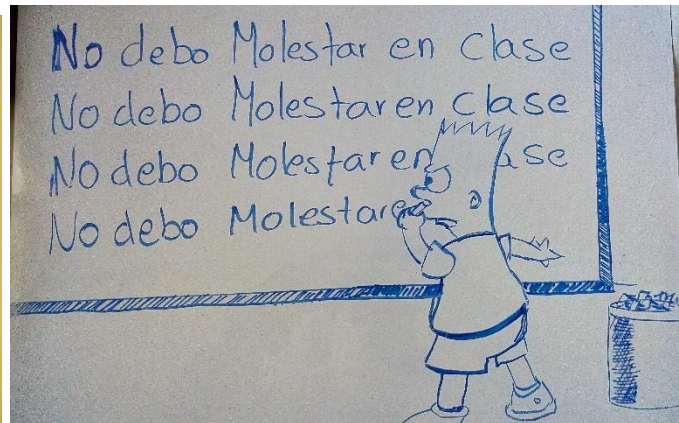 No debo Molestar en clase
No debo Molestar en clase
No debo Molestar en ase
No debo Molestar e